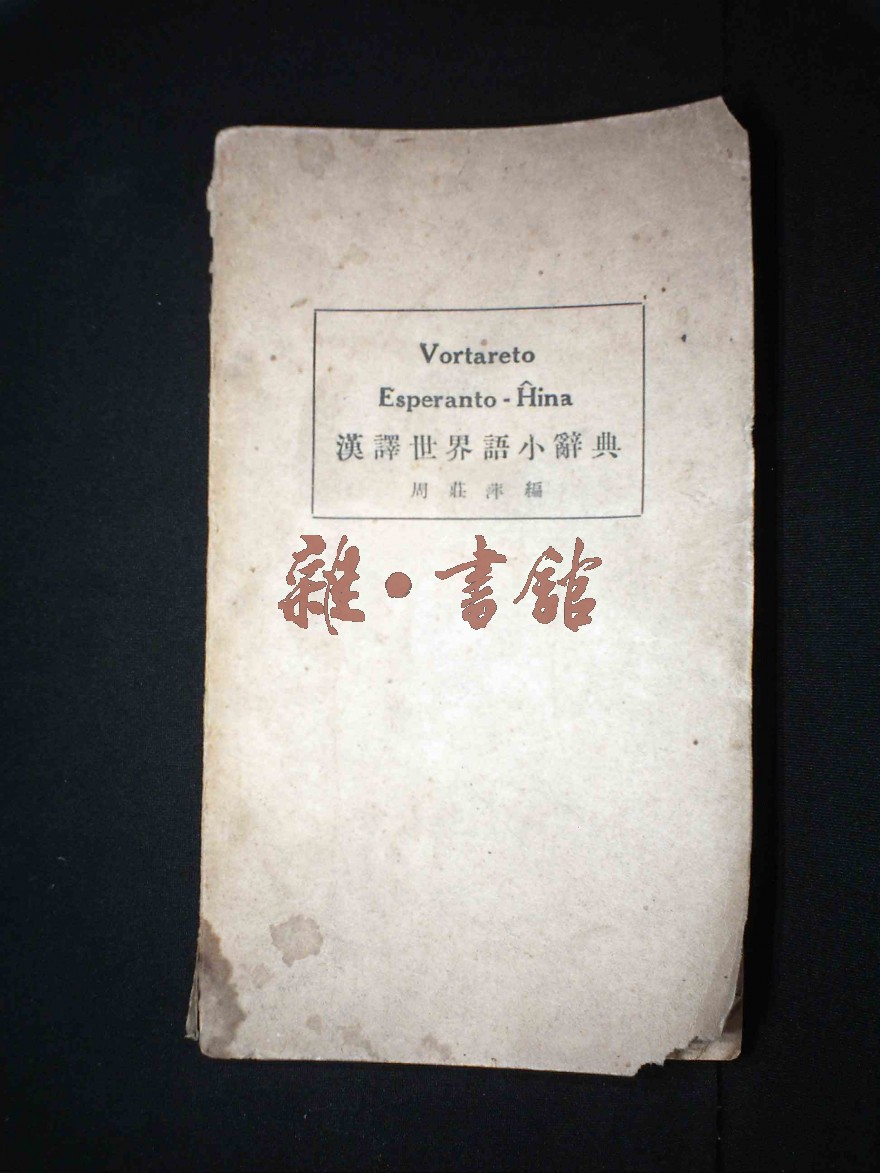 Vortareto
Esperanto - Ĥina
漢譯世界語小辭典
周莊萍編
雜·書館